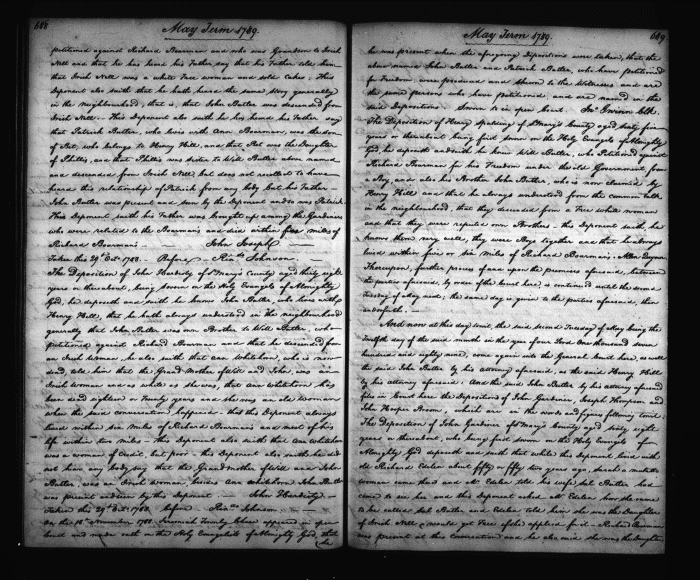 688
May Term 1789.
petitioned against Richard Boarman and who was Grandson to Irish
Nell and that he has heard his Father say that his Father told him
that Irish Nell was a white Free woman and sold Cakes. This
Deponent also saith that he hath heard the same story generally
in the Neighbourhood, that is, that John Butler was descended from
Irish Nell. This Deponent also saith he has heard his Father say
that Patrick Butler, who lives with Ann Boarman, was the son
of Pat, who belongs to Henry Hill, and that Pat was the Daughter
of Phillis, and that Phillis was sister to Will Butler above named
and descended from Irish Nell but does not recollect to have
heard this relationship of Patrick from any body but his Father
John Butler was present and seen by the Deponent and so was Patrick
This Deponent saith his Father was brought up among the Gardiners
who were related to the Boarmans and died within five miles of
Richard Boarman's. John Joseph
Taken this 29th Octr. 1788. Before Johnson.
The Deposition of John of Mary's County aged thirty eight
years or thereabout, being sworn on the Holy Evangels of Almighty
God, he deposeth and saith he knows John Butler, who lives with
Henry Hill, that he hath always understood in the neighbourhood
generally that John Butler was own Brother to Will Butler, who
petitioned against Richard Boarman and that he descended from
an Irish woman, he also saith that Ann Whitehorn, who is now
dead, told him that the Grand Mother of Will and John, was an
Irish woman and as white as she was, that Ann Whitehorn has
been dead eighteen or Twenty years and she was an old woman
when the said conversation happened. that this Deponent always
lived within six miles of Richard Boarman's and most of his
life within two miles. This Deponent also saith that Ann Whitehorn
was a woman of Credit, but poor. this Deponent also saith he did
not hear any body say that the Grand Mother of Will and John
Butler, was an Irish woman, besides Ann Whitehorn. John Butler
was present and seen by this Deponent. John
Taken this 29th Octr. 1788. before Johnson.
On the 18th November 1788. Jeremiah Townly Chase appeared in open
Court and made oath on the Holy Evangelists of Almighty God, that
he
689
May Term 1789.
he was present when the aforegoing Depositions were taken, that the
above named John Butler and Patrick Butler, who have petitioned
for Freedom, were produced and shewn to the Witnesses and are
the same persons who have petitioned, and are named in the
said Depositions. Sworn to in open Court. Jno. Gwinn Clk.
The Deposition of Henry Spalding of St. Mary's County aged sixty five
years or thereabout being first sworn on the Holy Evangels of Almighty
God, he deposeth and saith he knew Will Butler, who Petitioned against
Richard Boarman for his Freedom under the old Government from
a Boy, and also his Brother John Butler, who is now claimed by
Henry Hill and that he always understood from the common talk
in the neighbourhood, that they descended from a Free white woman
and that they were reputed own Brothers. this Deponent saith he
knows them very well, they were Boys together and that he always
lived within five or six miles of Richard Boarman's.
Thereupon, further process of and upon the premises aforesaid, between
the parties aforesaid, by order of the Court here, is continued until the second
Tuesday of May next; the same day is given to the parties aforesaid, then
and so forth.
And now at this day, to wit, the said second Tuesday of May being the
Twelfth day of the said month in the year of our Lord One thousand seven
hundred and eighty nine, come again into the General Court here, as well
the said John Butler by his attorney aforesaid, as the said Henry Hill
by his attorney aforesaid. And the said John Butler by his attorney aforesaid
files in Court here the Depositions of John Gardiner, Joseph Thompson and
John Hooper Broome, which are in the words and figures following to wit.
The Deposition of John Gardiner of St. Mary's County aged sixty eight
years or thereabout, who being first sworn on the Holy Evangels of
Almighty God deposeth and saith that while this deponent lived with
old Richard Edelen about fifty or fifty two years ago, Sarah a mulatto
woman came there and Mr. Edelen told his wife Sal Butler had
come to see her and this Deponent asked Mr. Edelen how she came
to be called Sal Butler and Edelen told him she was the Daughter
of Irish Nell & would get Free if she applied for it. Richard Boarman
was present at this conversation and he also said she was the Daughter